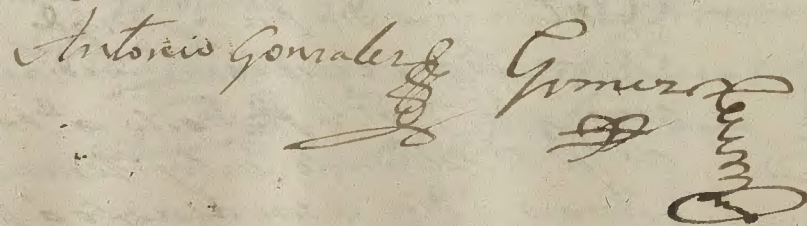 Antonio Gonzalez Gomez